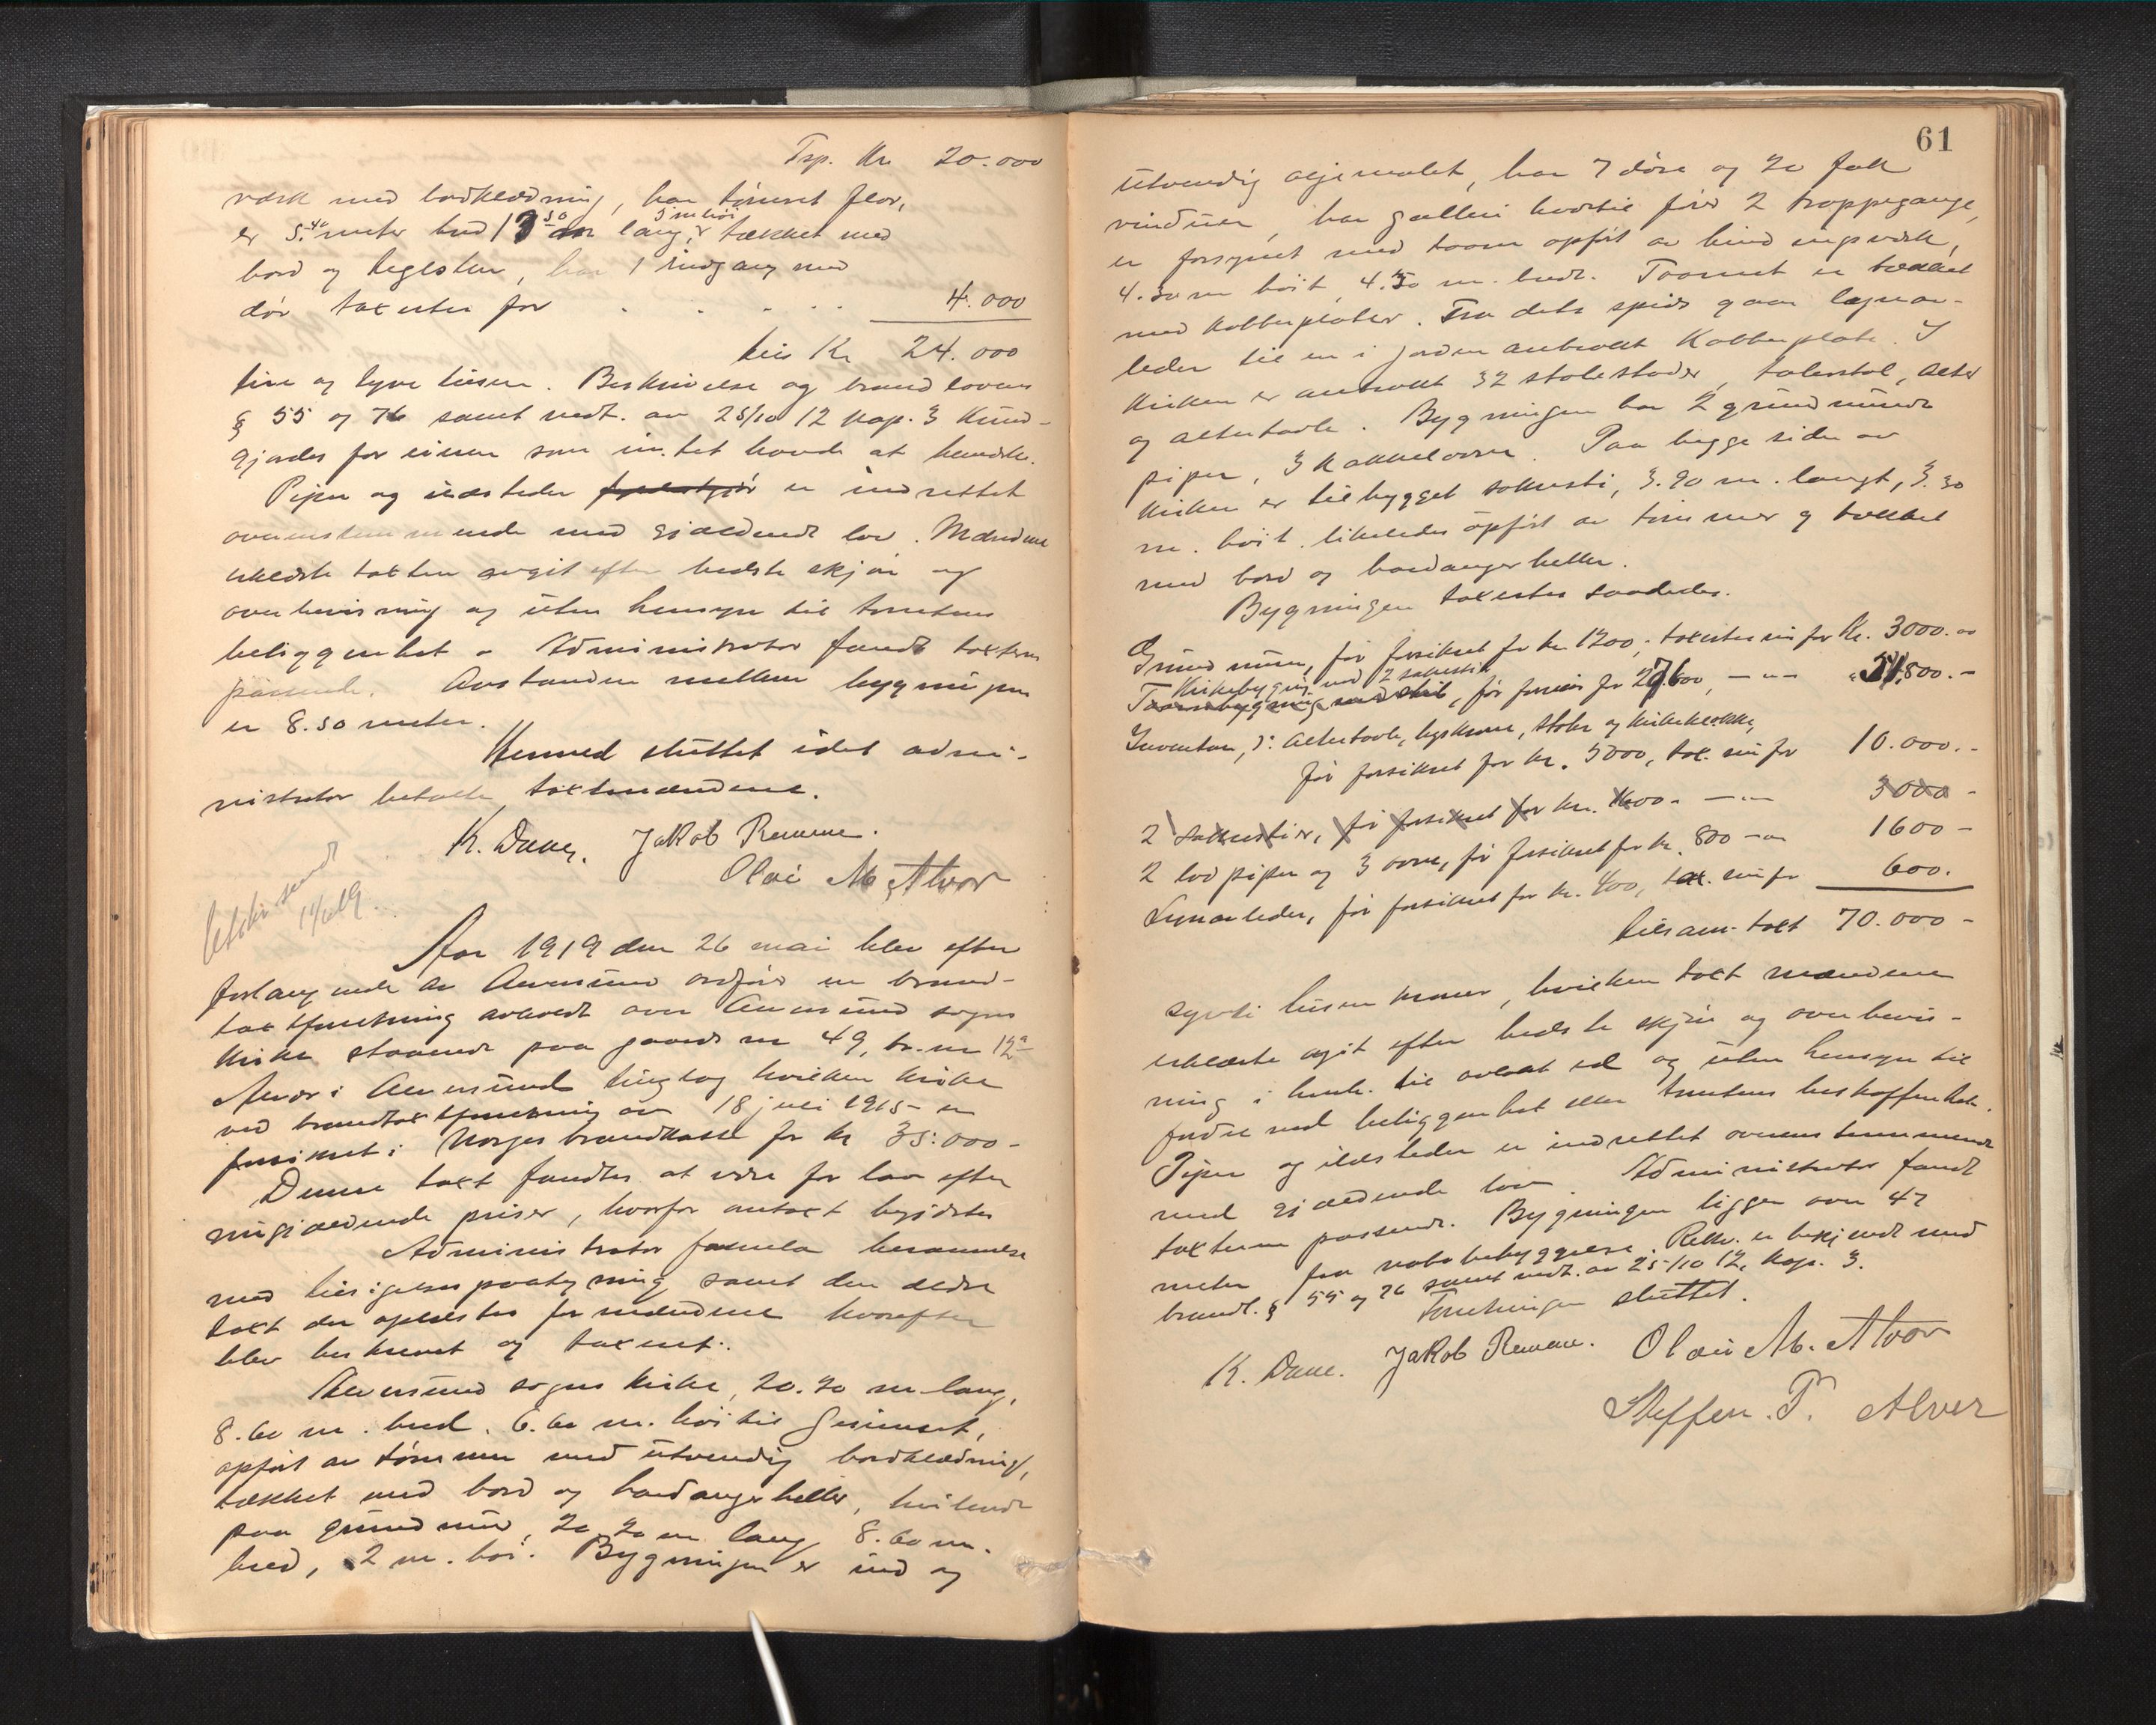 Trp. Kr 20.000
værk med bordklædning, har tømret flor,
er 5.40 meter bred 13.50 m lang, 5 m høi, tækket med
bord og teglsten, har 1 indgang med
dør taxertes for . . . . . 4.000
tils Kr 24.000
fire og tyve tusen. Beskrivelse og brandlovens
§ 55 og 76 samt vedt. av 25/10 12 kap. 3 kund-
gjordes for eieren som intet havde at bemerke.
Piper og ildsteder er indrettet
overensstemmende med gjældende lov. Mændene
erklærte taksten avgit efter bedste skjøn og
overbevisning og uten hensyn til tomtens
beliggenhet. Administrator fandt taksten
passende. Avstanden mellem bygningen
er 8.50 meter.
Hermed sluttet idet admi-
nistrator betalte takstmændene.
K. Daae. Jakob Remme.
Olai M. Alvor
Aar 1919 den 26 mai blev efter
forlangende av Alversund ordfører en brand-
takstforretning avholdt over Alversund sogns
kirke staaende paa gaards nr 49, br. nr 12a
Alvor i Alversund tinglag hvilken kirke
ved brandtakstforretning av 18 juli 1915 er
forsikret i Norges brandkasse for kr 35.000-
Denne takst fandtes at være for lav efter
nugjældende priser, hvorfor omtakst begjærtes
Administrator fremla berammelse
med tilsigelsespaategning samt den ældre
takst der oplæstes for mændene hvorefter
blev beskrevet og taxert:
Alversund sogns kirke, 20.70 m lang,
8.60 m. bred. 6.60 m. høi til Gesimset,
opført av tømmer med utvendig bordklædning,
tækket med bord og hardangerheller, hvilende
paa grundmur, 20.70 m lang 8.60 m.
bred, 2 m. høi. Bygningen er ind og
61
utvendig oljemalet, har 7 døre og 20 fall
vinduer, har galleri hvortil fører 2 trappegange,
er forsynet med taarn opført av bindingsverk,
4.30 m høit, 4.50 m. bredt. Taarnet er tækket
med kobberplater. Fra dets spids gaar lynav-
leder til en i jorden anbrakt kobberplate. I
kirken er anbrakt 32 stolestader, talerstol, alter
og altertavle. Bygningen har 2 grundmurede
piper, 3 kakkelovner. Paa begge sider av
kirken er tilbygget sakresti, 3.90 m. langt, 3.30
m. høit. likeledes opført av tømmer og tækket
med bord og hardangerheller.
Bygningen taxertes saaledes.
Grundmur, før forsikret for kr 1200, taxertes nu for Kr. 3000.00
Kirkebygning med 2 sakristier
før forsikr. for 27600, — „ — „ 51,800.-
Inventar, ɔ: Altertavle, lyskrone, stoler og kirkeklokke,
før forsikret for kr. 5000, tax. nu for 10.000.-
2 sakristier, før forsikret for kr. 1600.- — „ — 3000 -
2 lod piper og 3 ovne, før forsikret for kr. 800 — „ 1600 -
Lynavleder, før forsikret for kr. 400, tax. nu for 600.
tilsam. takst 70.000 -
sytti tusen kroner, hvilken takst mændene
erklærte avgit efter bedste skjøn og overbevis-
ning i henh. til avlagt ed og uten hensyn til
fordel ved beliggenhet eller tomtens beskaffenhet.
Piper og ildsteder er indrettet overensstemmende
med gjældende lov. Administrator fandt
taksterne passende. Bygningen ligger over 47
meter fra nabobebyggelse. Rekv. er bekjendt med
brandl. § 55 og 76 samt vedt. av 25/10 12, kap. 3.
Forretningen sluttet.
K. Daae. Jakob Remme. Olai M. Alvor
Steffen. P. Alver